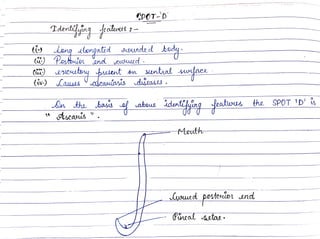 SPOT-'D'
Identifying features:-
(i) Long elongated rounded body.
(ii) Posterior end curved.
(iii) excretory present on ventral surface.
(iv) Causes ascariasis diseases.
On the basis of above identifying features the SPOT 'D' is
"Ascaris".
Mouth
Curved posterior end
Pineal setae.